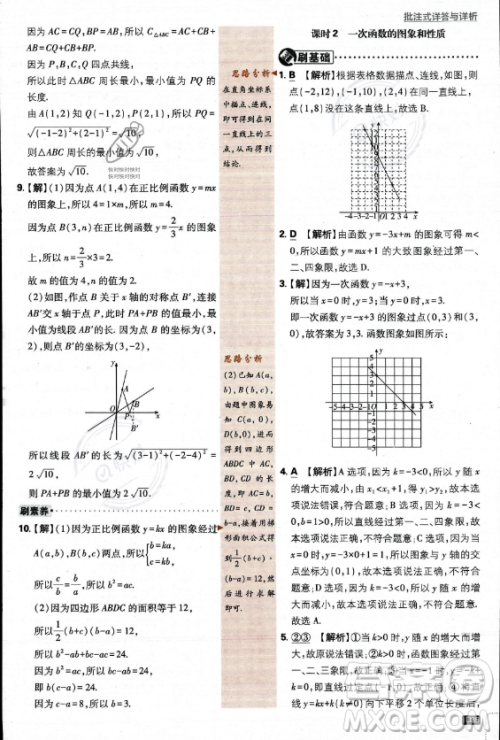 批注式详答与详析
因为 AC=CQ,BP=CP,所以 C△ABC=AC+CB+
AB=CQ+CP+AB.
因为 P,C,Q 四点共线,
所以此时△ABC 周长最小,最小值为 PQ 的
长度.
由(2)知 Q(1,-2),P(2,1),所以 PQ=
√(1-2)²+(-2-1)²=√10.
则△ABC 周长的最小值为√10,
故答案为√10.
9.【解】(1)因为点 A(1,4)在正比例函数 y=mx
的图象上,所以 4=1×m,即 m=4.
因为点 B(3,n)在正比例函数 y=2/3x 的图象
上,所以 n=2/3×3=2.
故 m 的值为 4,n 的值为 2.
(2)如图,作点 B 关于 x 轴的对称点 B′,连接
AB′交 x 轴于点 P,此时 PA+PB 最小.
因为点 B 的坐标为(3,2),
则点 B′的坐标为(3,-2),
y
A
B
O
P
x
B′
所以线段 AB′的长为√(3-1)²+(-2-4)²=
2√10,
所以 PA+PB 的最小值为 2√10.
刷素养
10.【解】(1)因为正比例函数 y=kx 的图象经过
A(a,b),B(b,c)两点,所以{b=ka,
c=kb,
所以 c/b=b/a.
(2)因为四边形 ABDC 的面积等于 12,
所以 1/2(b+c)(b-a)=12,
所以 b²-ab+bc-ac=24.
因为 b²=ac,所以 bc-ab=24.
因为 c=a+8,所以 b(a+8)-ab=24,
所以 8b=24,所以 b=3.
思路分析
在直角坐标系
中描点、连线,
即可得到在同
一直线上的三
点,从而得到
结论.
思路分析
(2)已知 A(a,
b),B(b,c),
由题中图象易
知 C(a,0),
D(b,0),进而
得到四边形
ABDC 中 AC,
BD,CD 的长
度,AC=b,
BD=c,CD=
b-a,接着用梯
形面积公式得
到 1/2(b+c)·
(b-a)=12,然
后进行求解
即可.
课时2 一次函数的图象和性质
刷基础
1. B 【解析】根据表格数据描点、连线,如图,则
点(-2,12),(-1,10),(2,4)在同一直线上,
点(1,8)没在这条直线上,故选 B.
-4-3-2-1 O 1 2 3 4 x
2. D 【解析】由函数 y=-3x+m 的图象可得 m<
0,所以函数 y=mx+1 的大致图象经过第一、
二、四象限,故选 D.
3.【解】因为一次函数 y=-x+3,
所以当 x=0 时,y=3;当 y=0 时,x=3,
即一次函数 y=-x+3 的图象过点(0,3)和(3,
0),故答案为 3,3.一次函数图象如图所示:
4. A 【解析】A 选项,因为 k=-3<0,所以 y 随 x
的增大而减小,由 x₁<x₂+1,得 y₁>y₂,故本选
项说法错误,符合题意;B 选项,因为 k=-3<
0,所以直线经过第二、四象限,因为 b=1>0,
所以直线经过第一、二、四象限,故本选项说法
正确,不符合题意;C 选项,因为 y=-3x+1,当
x=0 时,y=1,所以图象与 y 轴的交点坐标为
(0,1),故本选项说法正确,不符合题意;D 选
项,因为 k=-3<0,所以 y 随 x 的增大而减小,
故本选项说法正确,不符合题意.故选 A.
5. ②③ 【解析】①当 k>0 时,y 随 x 的增大而增
大,故原说法错误;②当 k<0 时,函数图象经过
第一、二、四象限,故原说法正确;③将一次函
数 y=kx+3(k≠0)向下平移 2 个单位长度后,
答案圈
MXQE.COM